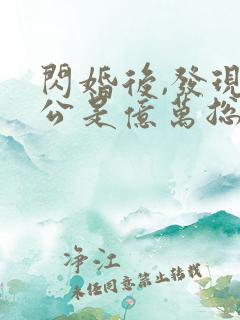 閃婚後,發現
公是億萬總
净江
未任同意禁止轉載